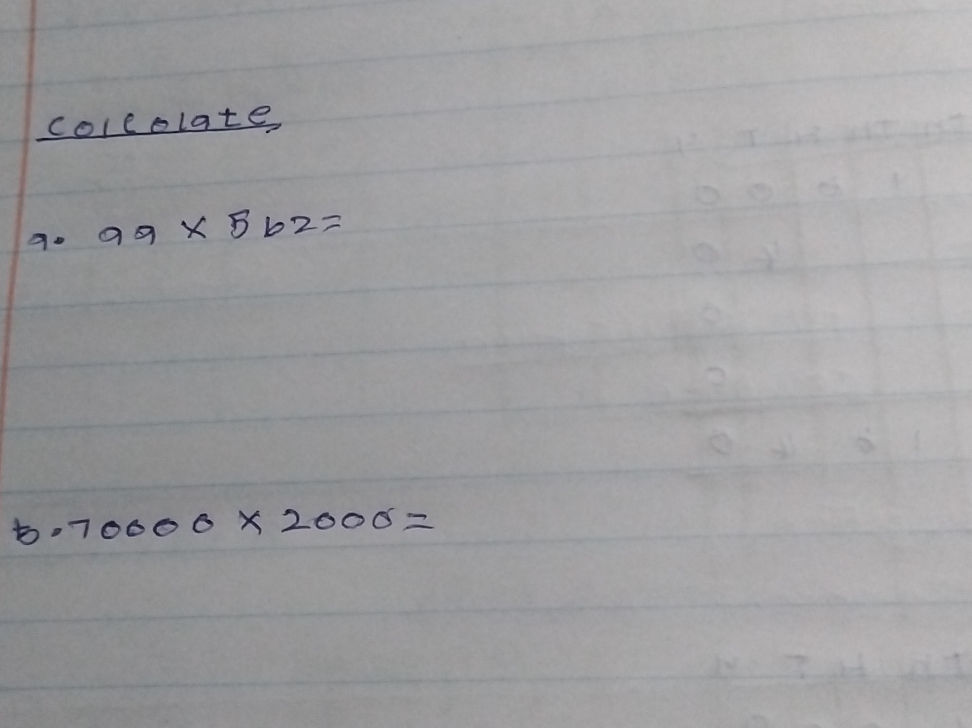 Colcolate
a. 99 × 562=
b. 70000 × 2000=